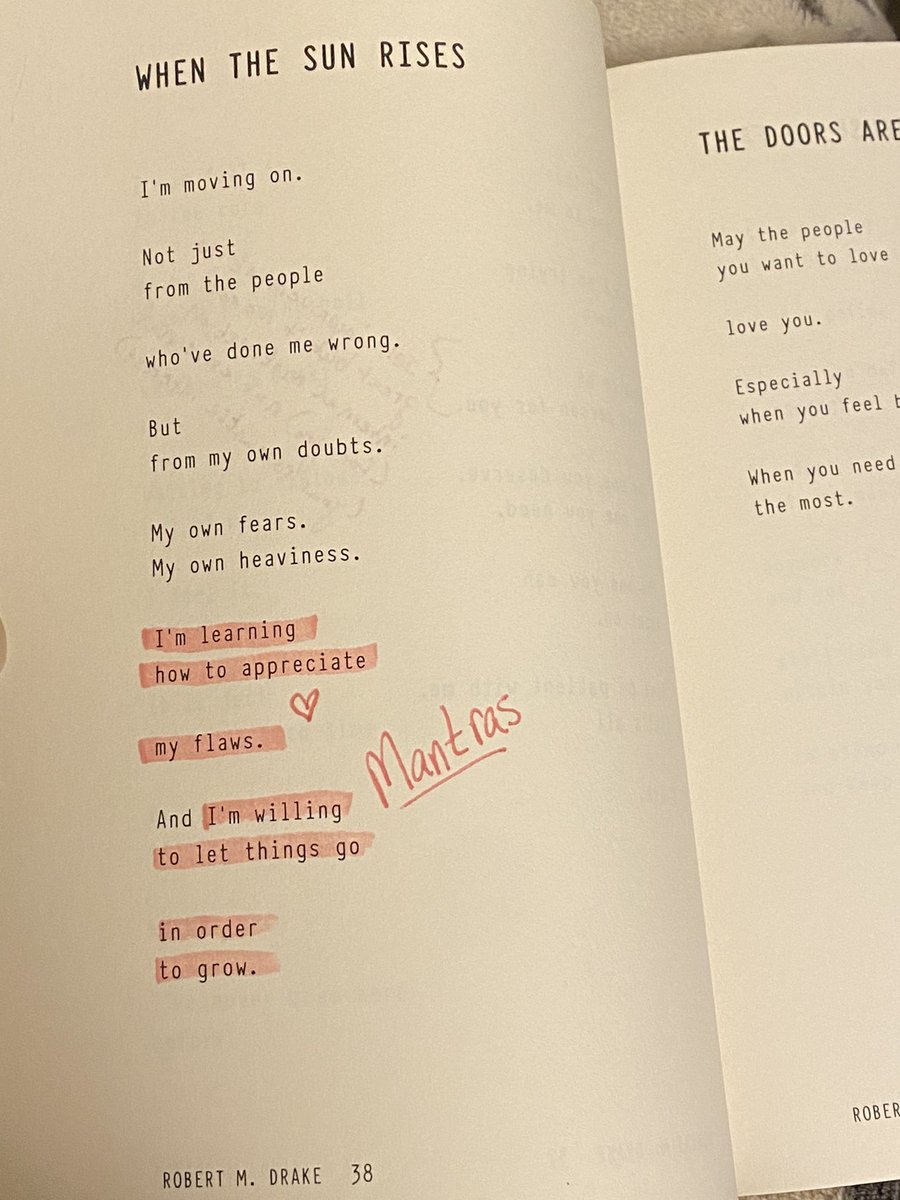 WHEN THE SUN RISES
I'm moving on.
Not just
from the people
who've done me wrong.
But
from my own doubts.
My own fears.
My own heaviness.
I'm learning
how to appreciate
my flaws.
Mantras
And I'm willing
to let things go
in order
to grow.
ROBERT M. DRAKE 38
THE DOORS ARE
May the people
you want to love
love you.
Especially
when you feel
When you need
the most.